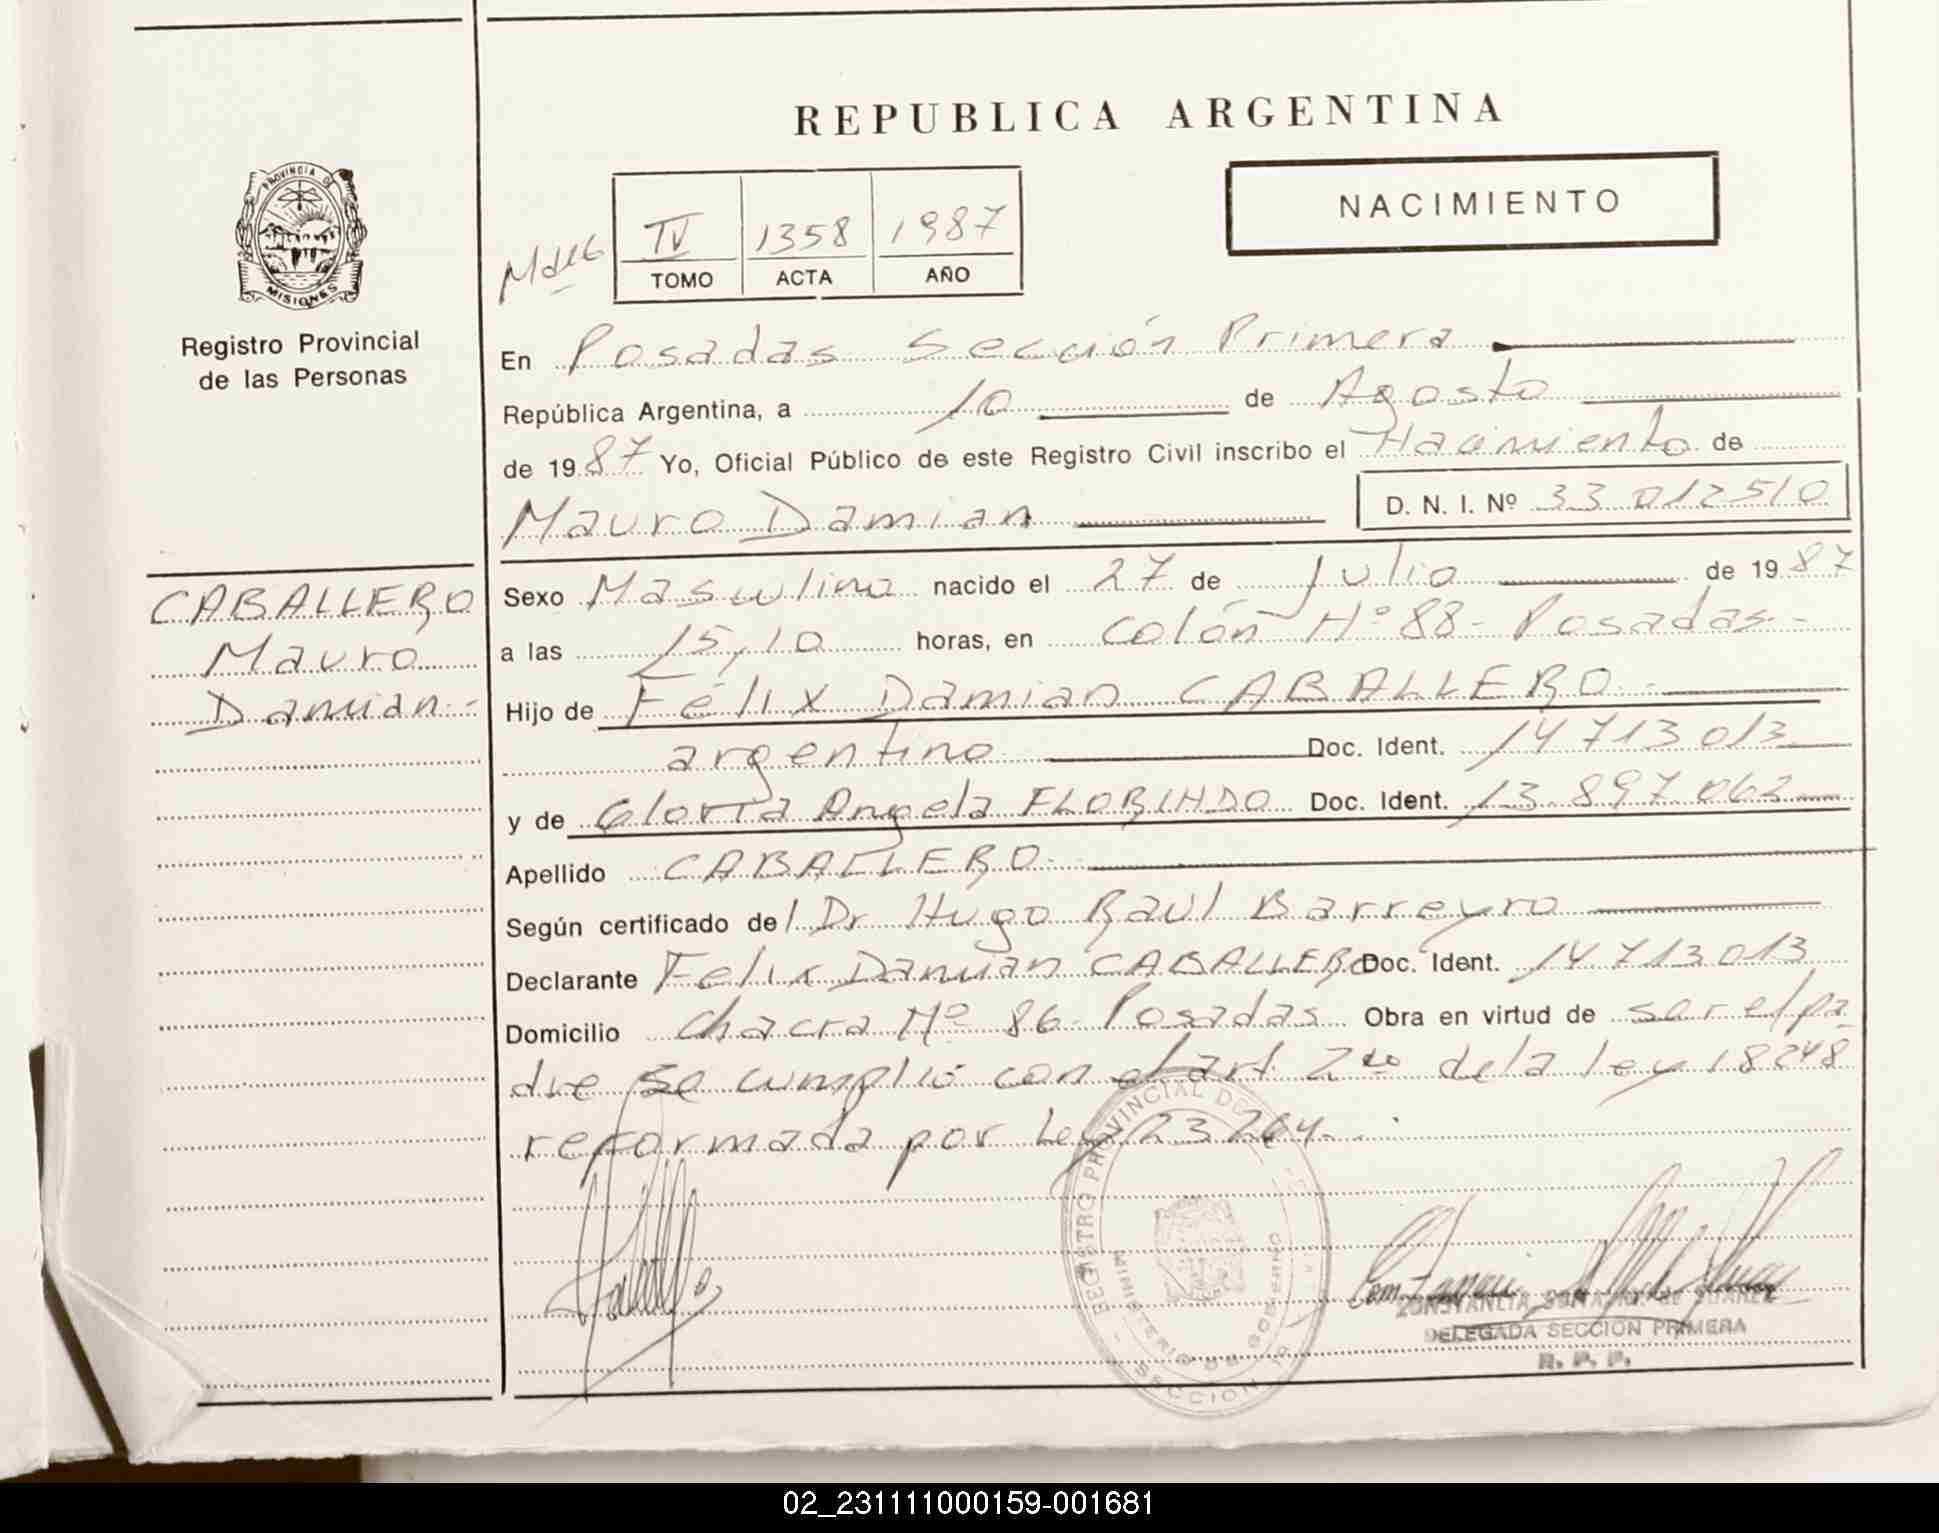 REPUBLICA ARGENTINA
NACIMIENTO
PROVINCIA DE
MISIONES
Registro Provincial
de las Personas
IV 1358 1987
TOMO ACTA AÑO
En Posadas Sección Primera
República Argentina, a 10 de Agosto
de 1987 Yo, Oficial Público de este Registro Civil inscribo el Nacimiento de
Mauro Damian D. N. I. Nº 33 012510
CABALLERO
Mauro
Damian.-
Sexo Masculino nacido el 27 de Julio de 1987
a las 15,10 horas, en Colón Nº 88- Posadas.-
Hijo de Félix Damian CABALLERO.-
argentino Doc. Ident. 14 713 013
y de Gloria Angela FLORINDO Doc. Ident. 13 897 062
Apellido CABALLERO.
Según certificado del Dr Hugo Raúl Barreyro
Declarante Felix Damian CABALLERO Doc. Ident. 14 713 013
Domicilio Chacra Nº 86- Posadas Obra en virtud de ser el pa
dre Se cumplió con el art. 2do de la ley 18248
reformada por Ley 23264.
REGISTRO PROVINCIAL DE
MINISTERIO DE GOBIERNO
SECCION 1ª
DELEGADA SECCION PRIMERA
R. P. P.
02_231111000159-001681